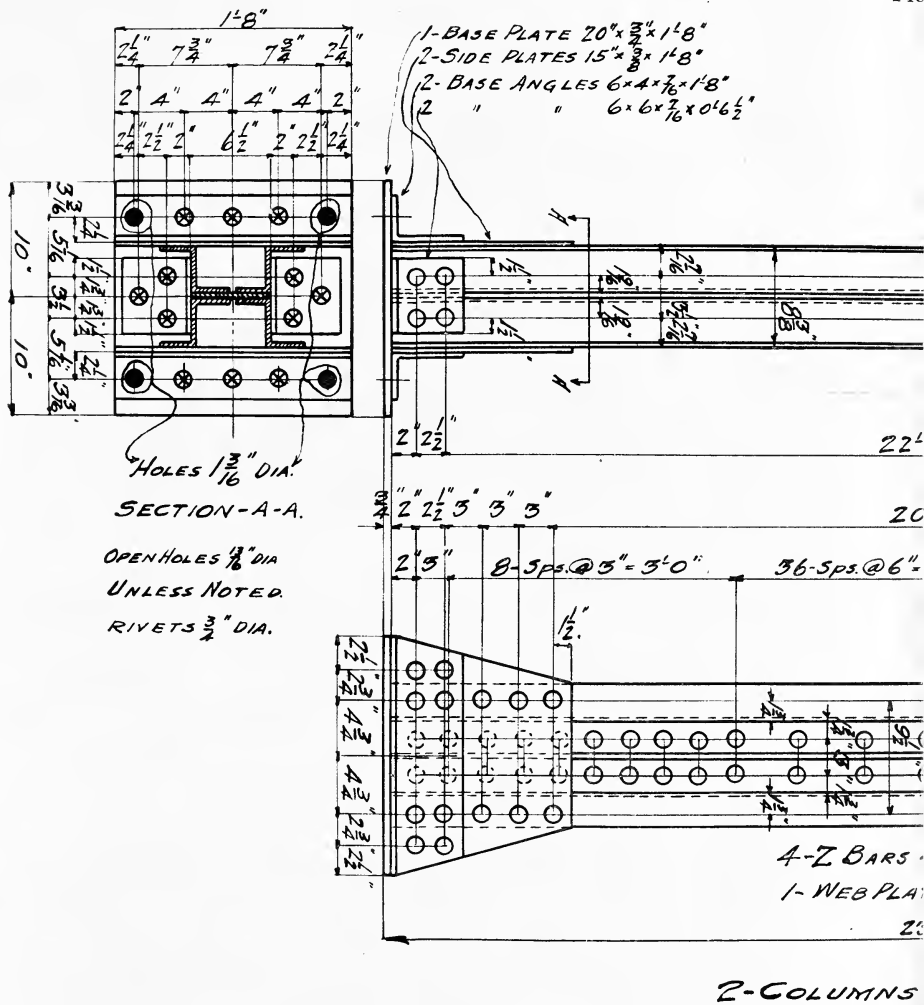 1'-8"
2 1/4" 7 3/4" 7 3/4" 2 1/4"
2" 4" 4" 4" 4" 2"
2 1/4" 2 1/2" 2" 6 1/2" 2" 2 1/2" 2 1/4"
1-BASE PLATE 20" x 3/4" x 1'8"
2-SIDE PLATES 15" x 3/8" x 1'8"
2-BASE ANGLES 6 x 4 x 7/16 x 1'-8"
2 " " 6 x 6 x 7/16 x 0'6 1/2"
10" 10"
3 3/16 5 1/16 1 1/2" 1 3/4" 3 1/2 1 3/4" 1 1/2" 5 1/16" 3 3/16
2 1/4 2 1/4"
A
A
1 1/2" 1 1/2"
2 7/16" 3 1/2" 2 7/16"
8 3/8"
2" 2 1/2" 22'
HOLES 1 3/16" DIA.
SECTION-A-A.
OPEN HOLES 13/16" DIA
UNLESS NOTED.
RIVETS 3/4" DIA.
3/4" 2" 2 1/2" 3" 3" 3" 20
2" 3" 8-Sps.@ 3" = 3'0" 36-Sps.@ 6" =
1 1/2"
2 1/2" 2 3/4" 4 3/4" 4 3/4" 2 3/4" 2 1/2"
1 3/4" 1 3/4" 3" 1 3/4" 1 3/4" 9 1/2"
4-Z BARS
1-WEB PLA
2-COLUMNS